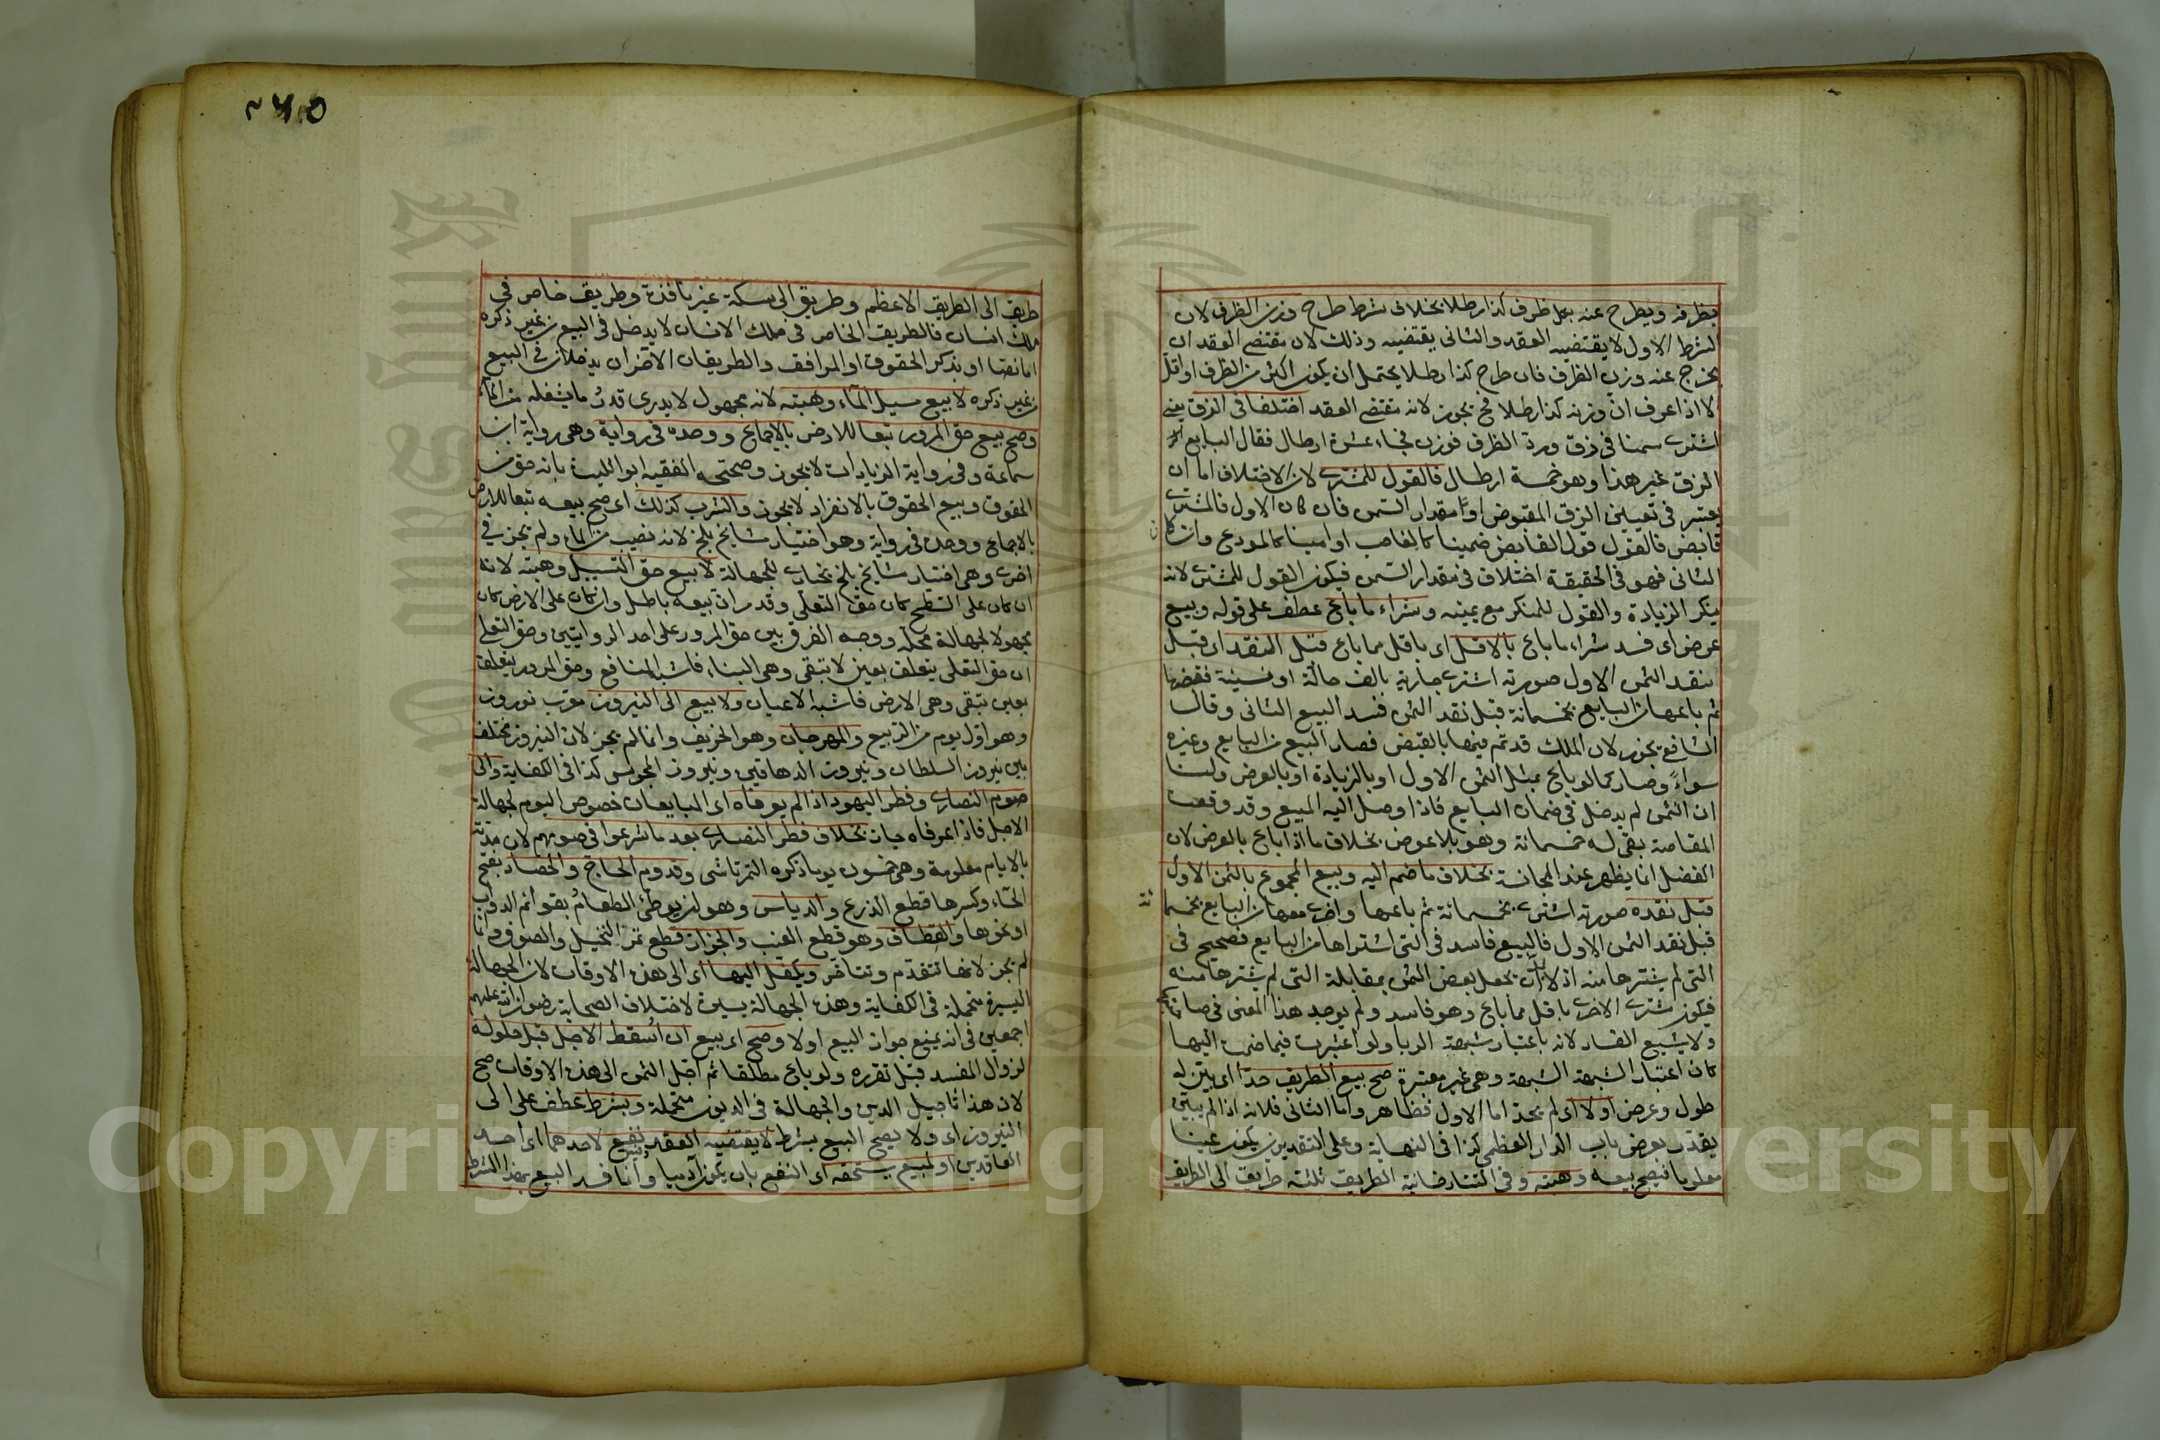 بظرفه ويطرح عنه بكل ظرف كذا رطلا بخلاف شرط طرح وزن الظرف لان
الشرط الاول لا يقتضيه العقد والثانى يقتضيه وذلك لان مقتضى العقد ان
يخرج عنه وزن الظرف فان طرح كذا رطلا يحتمل ان يكون اكثر من الظرف او اقل
الا اذا عرف ان وزنه كذا رطلا فح يجوز لانه مقتضى العقد اختلفا فى الزق يعنى
اشترى سمنا فى زق ورد الظرف فوزن فجاء عشرة ارطال فقال البايع
الزق غير هذا وهو خمسة ارطال فالقول للمشترى لان الاختلاف اما ان
يعتبر فى تعيين الزق المقبوض او فى مقدار السمن فان كان الاول فالمشترى
قابض فالقول قول القابض ضمينا كالغاصب او امينا كالمودع وان كان
الثانى فهو فى الحقيقة اختلاف فى مقدار السمن فيكون القول للمشترى لانه
ينكر الزيادة والقول للمنكر مع يمينه وشراء ما باع عطف على قوله وبيع
عرض اى فسد شراء ما باع بالاقل اى باقل مما باع قبل النقد اى قبل
نقد الثمن الاول صورته اشترى جارية بالف حالة او نسيئة فقبضها
ثم باعها من البايع بخمسمائة قبل نقد الثمن فسد البيع الثانى وقال
الشافعى يجوز لان الملك قد تم فيها بالقبض فصار البيع من البايع وغيره
سواء وصار كما لو باع بمثل الثمن الاول او بالزيادة او بالعرض ولنا
ان الثمن لم يدخل فى ضمان البايع فاذا وصل اليه المبيع وقد وقعت
المقاصة بقى له خمسمائة وهو بلا عوض بخلاف ما اذا باع بالعرض لان
الفضل انما يظهر عند المجانسة بخلاف ما ضم اليه وبيع المجموع بالثمن الاول
قبل نقده صورته اشترى بخمسمائة ثم باعها واخرى معها من البايع بخمسمائة
قبل نقد الثمن الاول فالبيع فاسد فى التى اشتراها من البايع فصحيح فى
التى لم يشترها منه اذ لا بد ان يجعل بعض الثمن بمقابلة التى لم يشترها منه
فيكون مشتريا الاخرى باقل مما باع وهو فاسد ولم يوجد هذا المعنى فى صاحبتها
ولا يشيع الفساد لانه باعتبار شبهة الربا ولو اعتبرت فيما ضمت اليها
كان اعتبار الشبهة الشبهة وهى غير معتبرة صح بيع الطريق حد اى بين له
طول وعرض او لا اى لم يحد اما الاول فظاهر واما الثانى فلانه اذا لم يبين
يقدر بعرض باب الدار العظمى كذا فى النهاية وعلى التقديرين يكون عينا
معلوما فيصح بيعه وهبته وفى التتارخانية الطريق ثلثة طريق الى الطريق
٢٤٥
طريق الى الطريق الاعظم وطريق الى سكة غير نافذة وطريق خاص فى
ملك انسان فالطريق الخاص فى ملك الانسان لا يدخل فى البيع من غير ذكره
اما نصا او بذكر الحقوق او المرافق والطريقان الآخران يدخلان فى البيع
من غير ذكره لا بيع مسيل الماء وهبته لانه مجهول لا يدرى قدر ما يشغله من الماء
وصح بيع حق المرور تبعا للارض بالاجماع ووحده فى رواية وهى رواية ابن
سماعة وفى رواية الزيادات لا يجوز وصححه الفقيه ابو الليث بانه حق من
الحقوق وبيع الحقوق بالانفراد لا يجوز والشرب كذلك اى صح بيعه تبعا للارض
بالاجماع ووحده فى رواية وهو اختيار مشايخ بلخ لانه نصيب من الماء ولم يجز فى
اخرى وهى اختيار مشايخ بخارى للجهالة لا بيع حق التسييل وهبته لانه
ان كان على السطح كان حق التعلى وقد مر ان بيعه باطل وان كان على الارض كان
مجهولا لجهالة محله ووجه الفرق بين حق المرور على احد الروايتين وحق التعلى
ان حق التعلى يتعلق بعين لا تبقى وهى البناء فاشبه المنافع وحق المرور يتعلق
بعين تبقى وهى الارض فاشبه الاعيان ولا بيع الى النيروز معرب نوروز
وهو اول يوم من الربيع والمهرجان وهو الخريف وانما لم يجز لان النيروز مختلف
بين نيروز السلطان ونيروز الدهاقين ونيروز المجوس كذا فى الكفاية والى
صوم النصارى وفطر اليهود اذا لم يعرفاه اى البايعان خصوص اليوم لجهالة
الاجل فاذا عرفاه جاز بخلاف فطر النصارى بعد ما شرعوا فى صومهم لان مدته
بالايام معلومة وهى خمسون يوما ذكره التمرتاشى وقدوم الحاج والحصاد بفتح
الحاء وكسرها قطع الزرع والدياس وهو ان يوطئ الطعام بقوائم الدواب
او نحوها والقطاف وهو قطع العنب والجزاز قطع تمر النخيل والصوف وانما
لم يجز لانها تتقدم وتتاخر ويكفل اليها اى الى هذه الاوقات لان الجهالة
اليسيرة متحملة فى الكفاية وهذه الجهالة يسيرة لاختلاف الصحابة رضوان الله عليهم
اجمعين فى انه يمنع جواز البيع اولا وصح اى بيع ان اسقط الاجل قبل حلوله
لزوال المفسد قبل تقرره ولو باع مطلقا ثم اجل الثمن الى هذه الاوقات صح
لان هذا تاجيل الدين والجهالة فى الديون متحملة وبشرط عطف على الى
النيروز اى ولا يصح البيع بشرط لا يقتضيه العقد نفع لاحدهما اى احد
العاقدين او لمبيع يستحقه اى النفع بان يكون آدميا وانما فسد البيع بهذا الشرط
Copyright © King Saud University